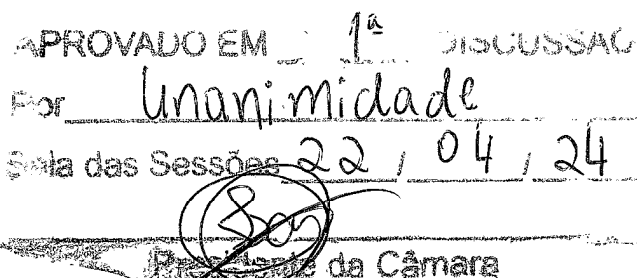 APROVADO EM 1ª DISCUSSÃO
Por Unanimidade
Sala das Sessões 22 / 04 / 24
Presidente da Câmara